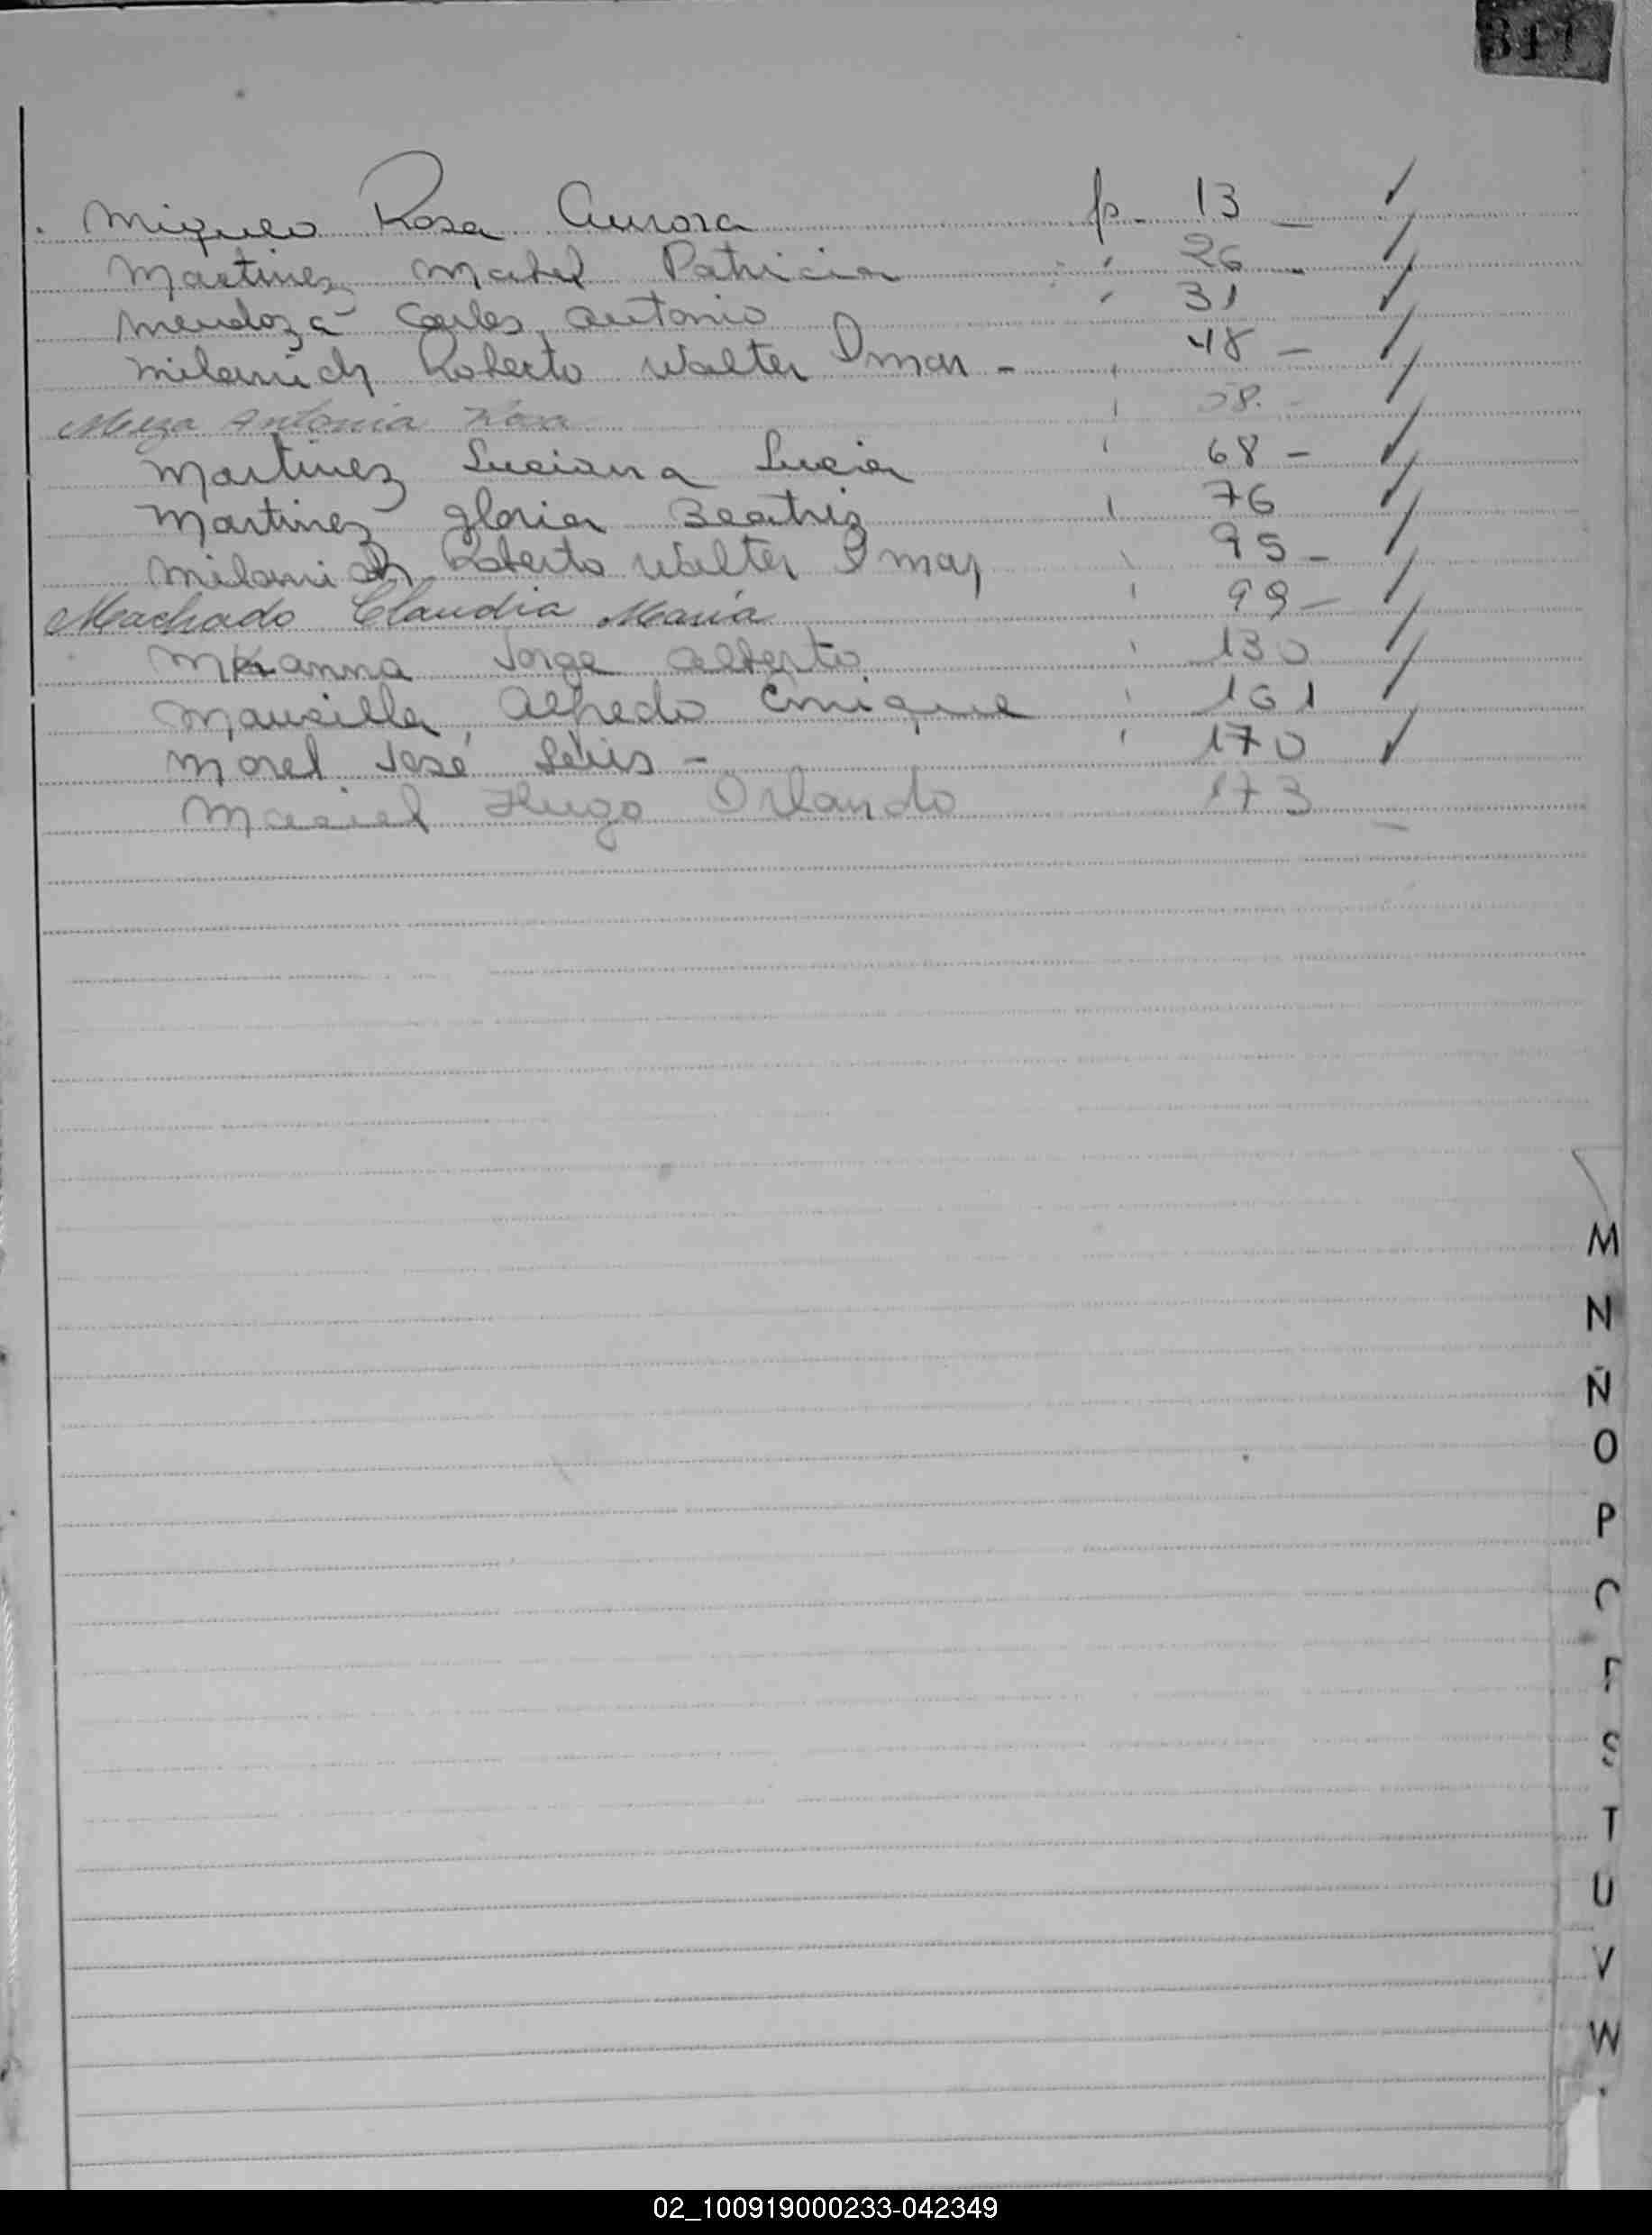 347
Miqueo Rosa Aurora fs - 13 -
Martinez Mabel Patricia " 26 -
Mendoza Carlos Antonio " 31
Milanich Roberto Walter Omar - " 48 -
Meza Antonia Rosa " 58 -
Martinez Luciana Lucia " 68 -
Martinez Gloria Beatriz " 76
Milanich Roberto Walter Omar " 95 -
Machado Claudia María " 99 -
Jorge Alberto " 130
Mansilla Alfredo Enrique " 161
Morel José Luis - " 170
Maciel Hugo Orlando 173 -
M
N
Ñ
O
P
S
T
U
V
W
02_100919000233-042349